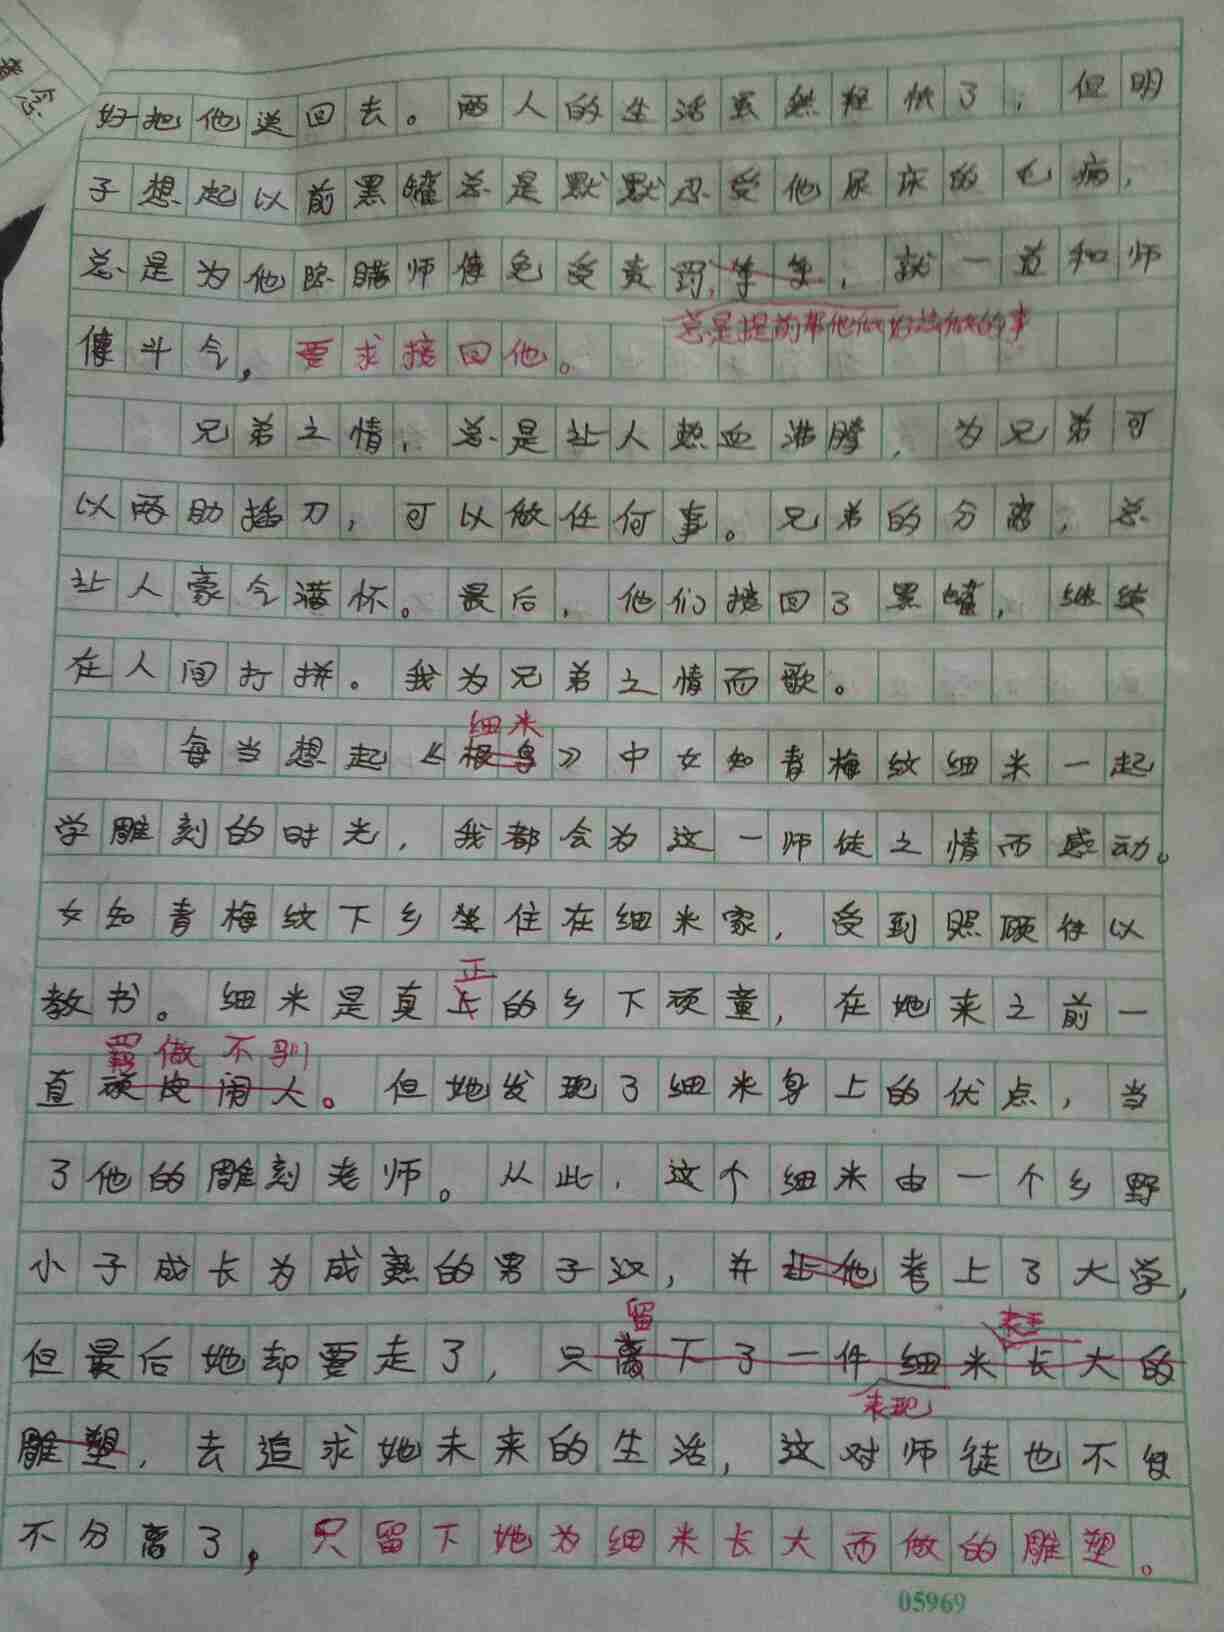 好把他送回去。两人的生活虽然轻松了，但明
子想起以前黑罐总是默默忍受他尿床的毛病，
总是为他隐瞒师傅免受责罚，等等，就一直和师
总是提前帮他做好该做的事
傅斗气，要求接回他。
兄弟之情，总是让人热血沸腾，为兄弟可
以两肋插刀，可以做任何事。兄弟的分离，总
让人豪气满怀。最后，他们接回了黑罐，继续
在人间打拼。我为兄弟之情而歌。
细米
每当想起《根鸟》中女知青梅纹细米一起
学雕刻的时光，我都会为这一师徒之情而感动。
女知青梅纹下乡坐住在细米家，受到照顾得以
正
教书。细米是真上的乡下顽童，在她来之前一
羁傲不驯
直顽皮闹人。但她发现了细米身上的优点，当
了他的雕刻老师。从此，这个细米由一个乡野
小子成长为成熟的男子汉，并让他考上了大学，
留
但最后她却要走了，只离下了一件细米长大的
表现
雕塑，去追求她未来的生活，这对师徒也不得
不分离了，只留下她为细米长大而做的雕塑。
05969